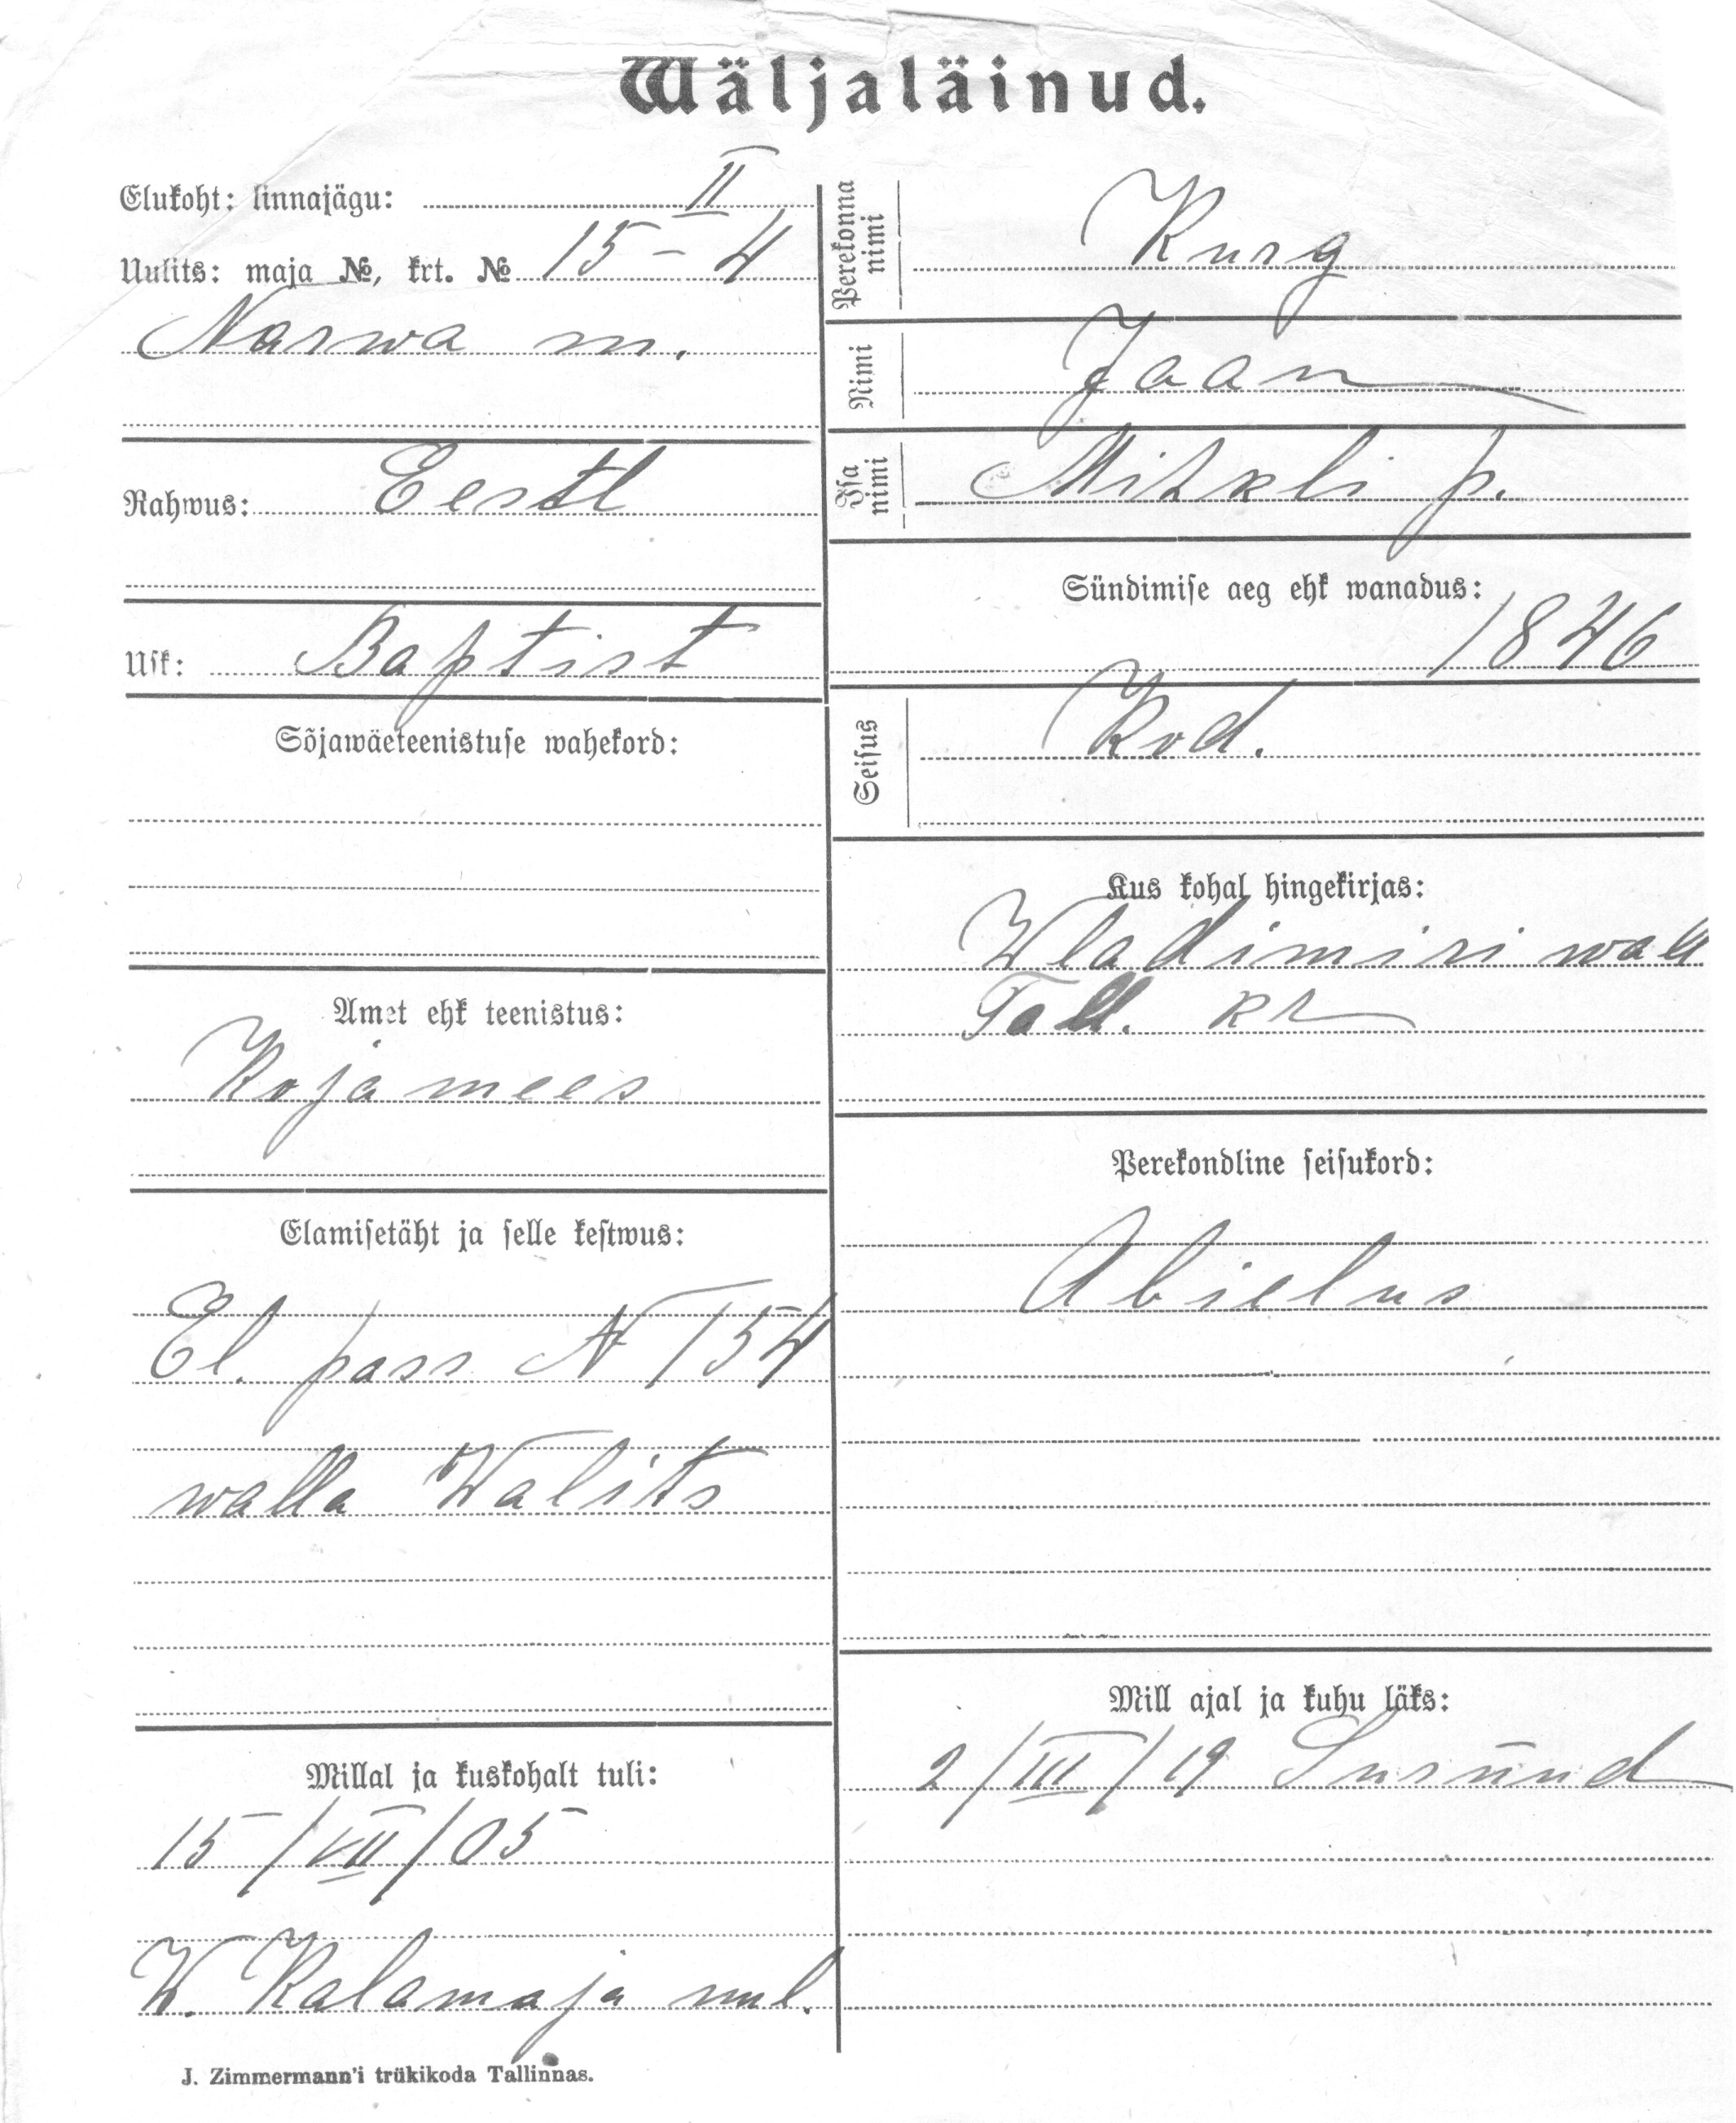 Wäljaläinud.
Elukoht: linnajägu: II
Uulits: maja №, krt. № 15-4
Narwa m.
Rahwus: Eestl
Usk: Baptist
Sõjawäeteenistuse wahekord:
Amet ehk teenistus:
Kojamees
Elamisetäht ja selle kestwus:
El. pass N 154
walla Walits
Millal ja kuskohalt tuli:
15/VII/05
W. Kalamaja uul.
Perekonna nimi Kurg
Nimi Jaan
Isa nimi Mihkli p.
Sündimise aeg ehk wanadus:
1846
Seisus Kod.
Kus kohal hingekirjas:
Wladimiri wall
Tall. kr
Perekondline seisukord:
Abielus
Mill ajal ja kuhu läks:
2/III/19 Surnud
J. Zimmermann'i trükikoda Tallinnas.